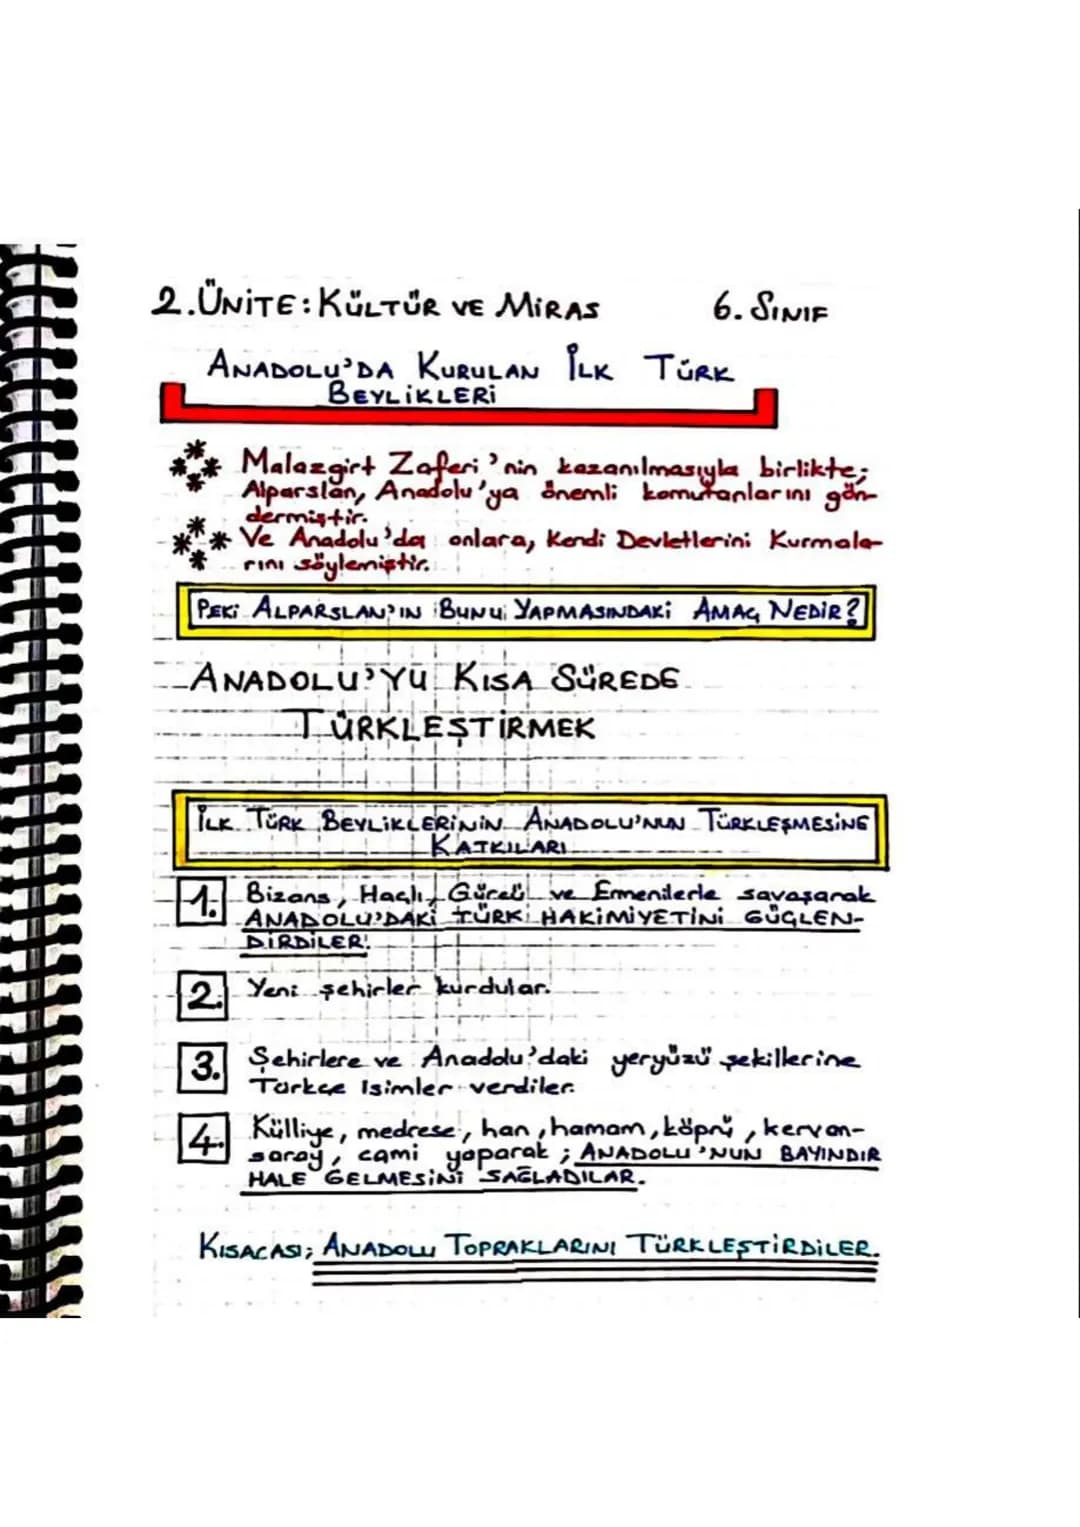 2.ÜNİTE: KÜLTÜR VE MİRAS 6. SINIF
ANADOLU'DA KURULAN İLK TÜRK
BEYLİKLERİ
Malazgirt Zaferi'nin kazanılmasıyla birlikte;
Alparslan, Anadolu'ya önemli komutanlarını gön-
dermiştir.
Ve Anadolu'da onlara, Kendi Devletlerini Kurmala-
rını söylemiştir.
PEKİ ALPARSLAN'IN BUNU YAPMASINDAKİ AMAÇ NEDİR?
ANADOLU'YU KISA SÜREDE
TÜRKLEŞTİRMEK
İLK TÜRK BEYLİKLERİNİN ANADOLU'NUN TÜRKLEŞMESİNE
KATKILARI
1. Bizans, Haçlı, Gürcü ve Ermenilerle savaşarak
ANADOLU'DAKİ TÜRK HAKİMİYETİNİ GÜÇLEN-
DİRDİLER.
2. Yeni şehirler kurdular.
3. Şehirlere ve Anadolu'daki yeryüzü şekillerine
Türkçe isimler verdiler.
4. Külliye, medrese, han, hamam, köprü, kervan-
saray, cami yaparak; ANADOLU'NUN BAYINDIR
HALE GELMESİNİ SAĞLADILAR.
KISACASI; ANADOLU TOPRAKLARINI TÜRKLEŞTİRDİLER.